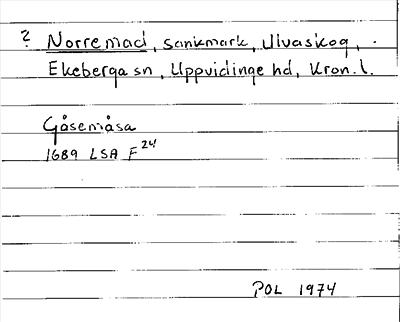 ? Norremad, sankmark, Ulvaskog,
Ekeberga sn, Uppvidinge hd, Kron. l.
Gåsemåsa
1689 LSA F24
POL 1974